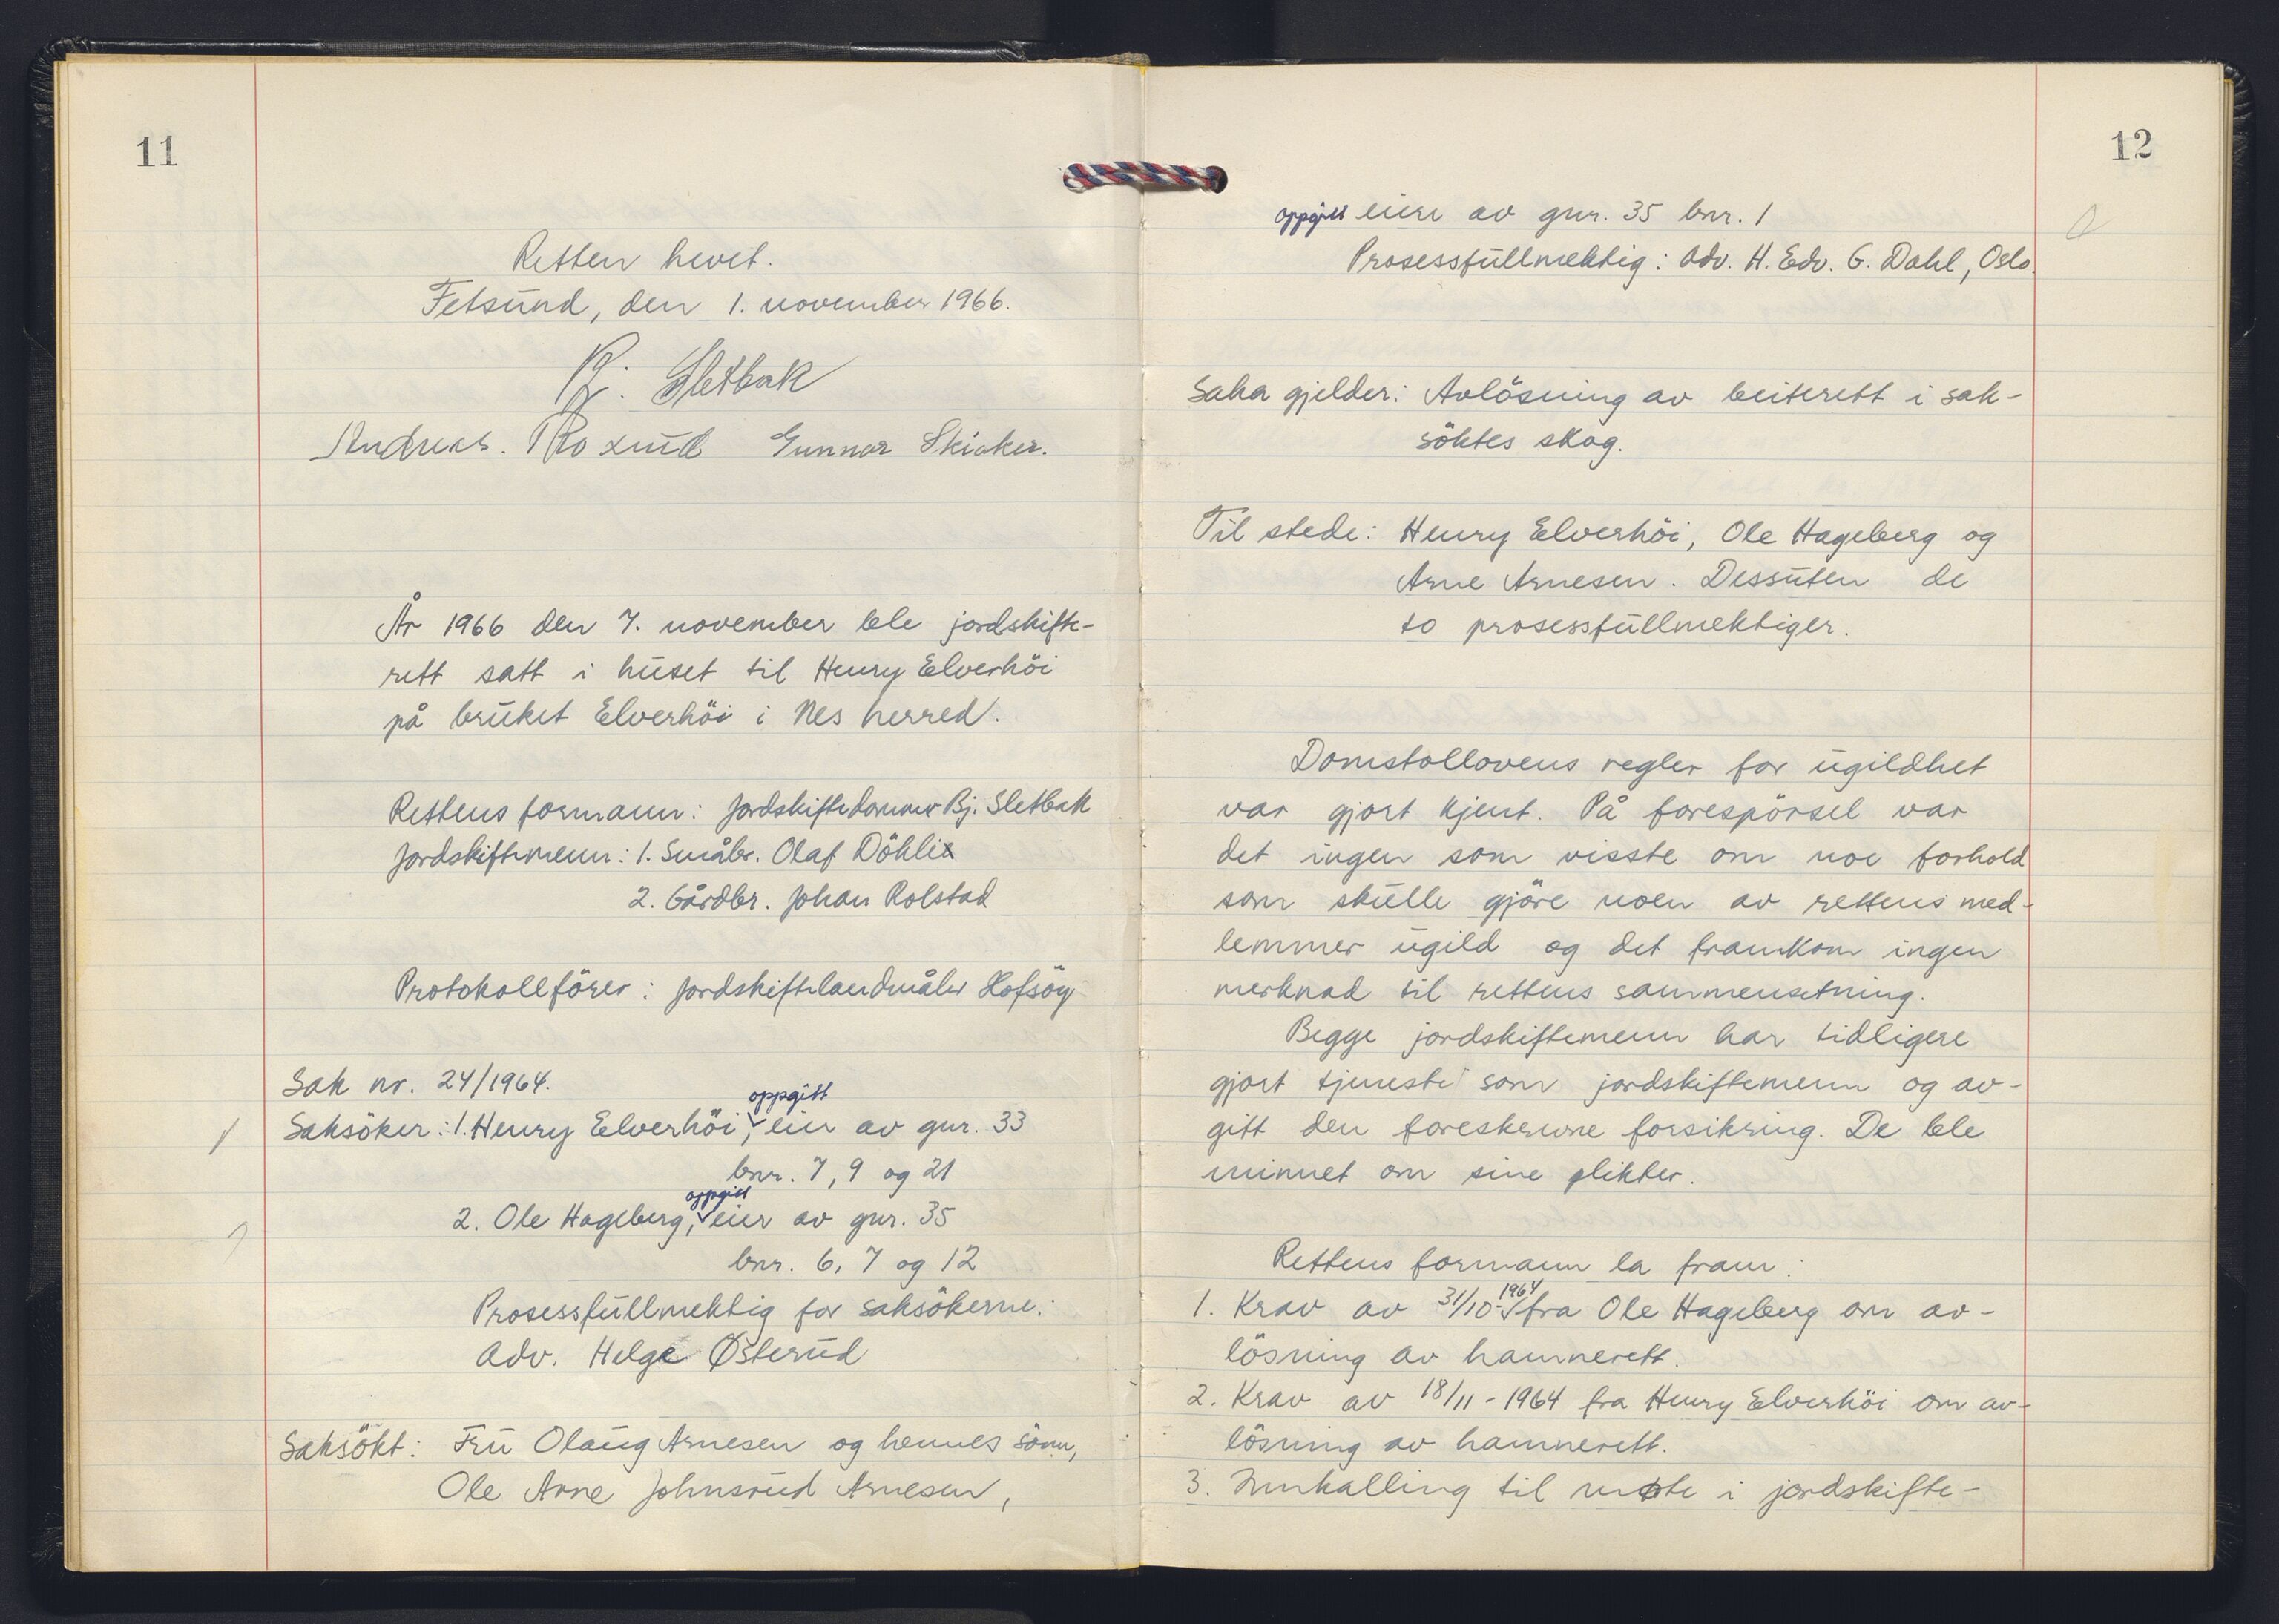 11
Retten hevet.
Fetsund, den 1. november 1966.
Bj. Sletbak
Andreas. Roxrud Gunnar Skiaker.
År 1966 den 7. november ble jordskifte-
rett satt i huset til Henry Elverhöi
på bruket Elverhöi i Nes herred.
Rettens formann: Jordskiftedommer Bj. Sletbak
Jordskiftemenn: 1. Småbr. Olaf Döhli
2. Gårdbr. Johan Rolstad
Protokollförer: Jordskiftelandmåler Hofsöy
Sak nr. 24/1964.
oppgitt
Saksöker: 1. Henry Elverhöi, eier av gnr. 33
bnr. 7, 9 og 21
oppgitt
2. Ole Hageberg, eier av gnr. 35
bnr. 6, 7 og 12
Prosessfullmektig for saksökerne:
Adv. Helge Østerud
Saksökt: Fru Olaug Arnesen og hennes sönn,
Ole Arne Johnsrud Arnesen,
12
oppgitt eiere av gnr. 35 bnr. 1
Prosessfullmektig: Adv. H. Edv. G. Dahl, Oslo.
Saka gjelder: Avlösning av beiterett i sak-
söktes skog.
Til stede: Henry Elverhöi, Ole Hageberg og
Arne Arnesen. Dessuten de
to prosessfullmektiger.
Domstollovens regler for ugildhet
var gjort kjent. På forespörsel var
det ingen som visste om noe forhold
som skulle gjöre noen av rettens med-
lemmer ugild og det framkom ingen
merknad til rettens sammensetning.
Begge jordskiftemenn har tidligere
gjort tjeneste som jordskiftemenn og av-
gitt den foreskrevne forsikring. De ble
minnet om sine plikter.
Rettens formann la fram:
1964
1. Krav av 31/10- fra Ole Hageberg om av-
lösning av hamnerett.
2. Krav av 18/11-1964 fra Henry Elverhöi om av-
lösning av hamnerett.
3. Innkalling til møte i jordskifte-